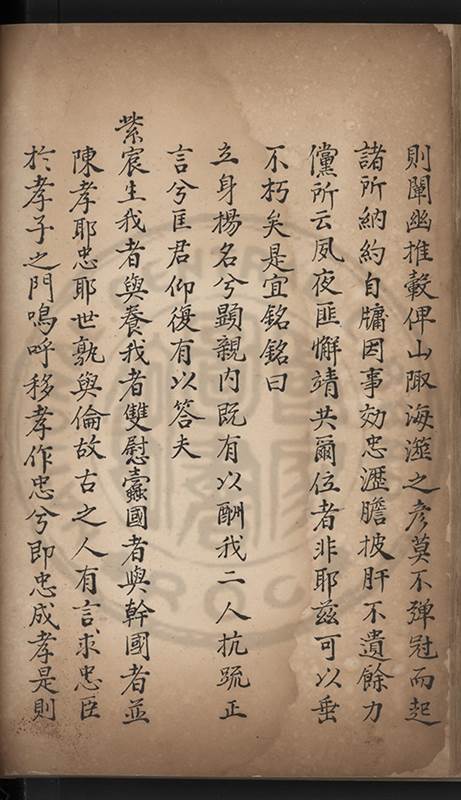 則闡幽推轂俾山陬海澨之彦莫不彈冠而起
諸所納約自牖因事効忠瀝膽披肝不遺餘力
儻所云夙夜匪懈靖共爾位者非耶兹可以垂
不朽矣是宜銘銘曰
立身揚名兮顕親内既有以酬我二人抗疏正
言兮匡君仰復有以答夫
紫宸生我者與養我者雙慰蠹國者與幹國者並
陳孝耶忠耶世孰與倫故古之人有言求忠臣
於孝子之門嗚呼移孝作忠兮即忠成孝是則